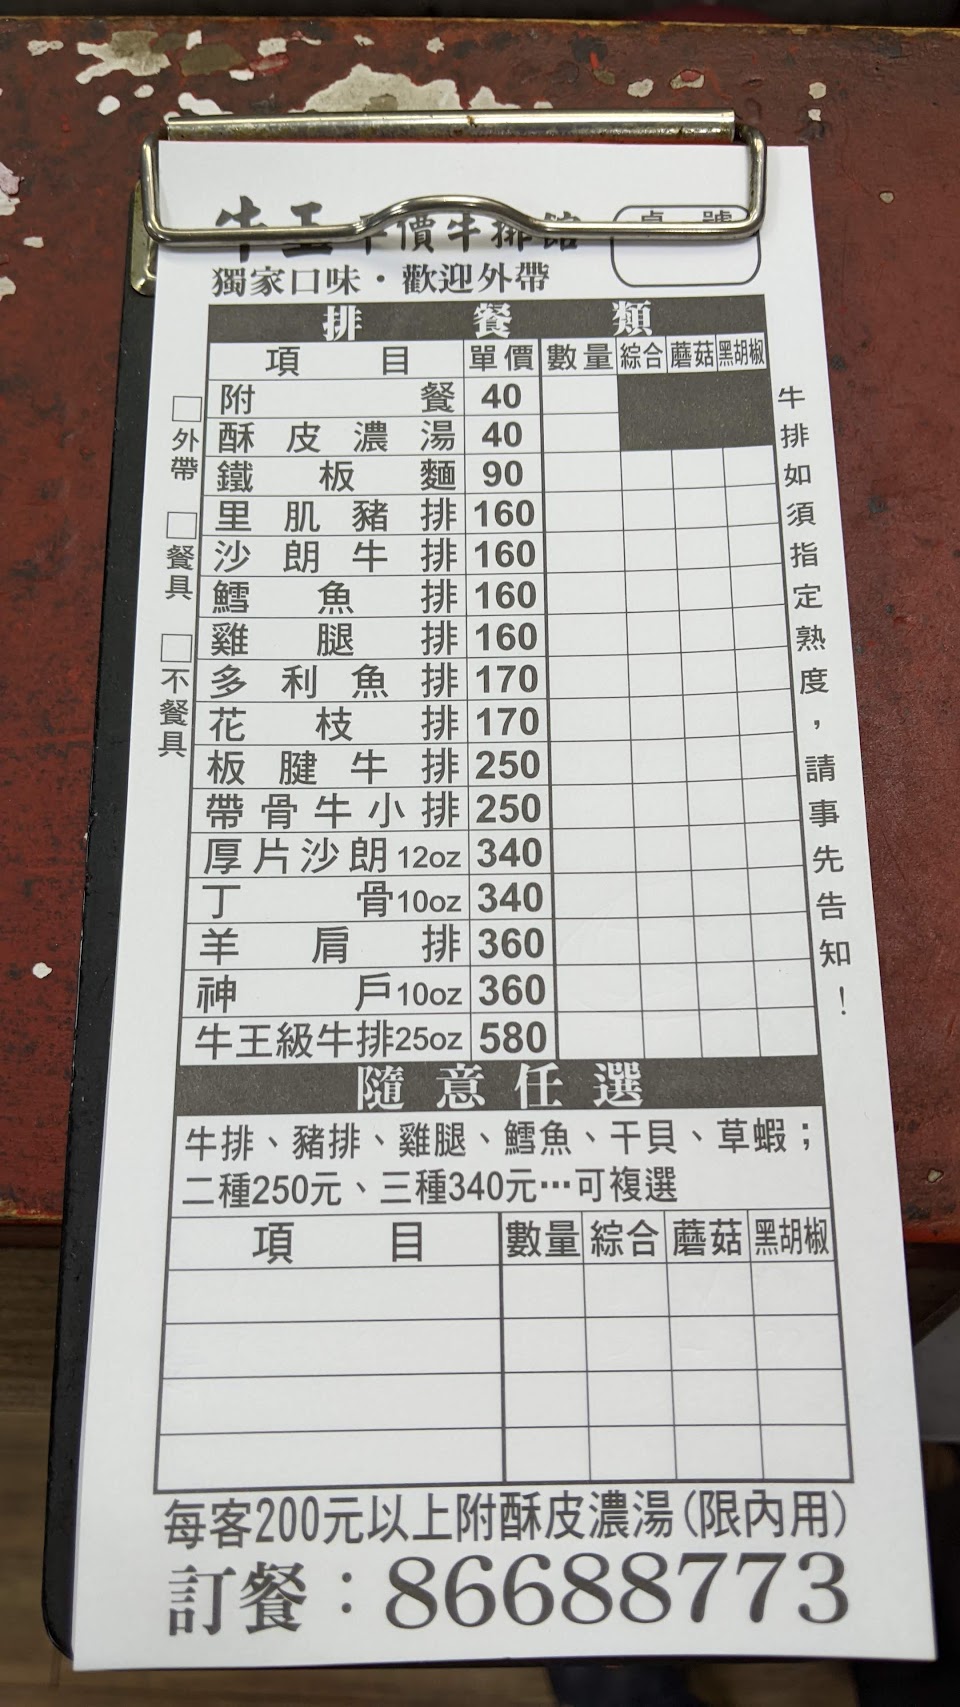 牛王平價牛排館
桌號
獨家口味·歡迎外帶
排餐類
項目 單價 數量 綜合 蘑菇 黑胡椒
附餐 40
酥皮濃湯 40
鐵板麵 90
里肌豬排 160
沙朗牛排 160
鱈魚排 160
雞腿排 160
多利魚排 170
花枝排 170
板腱牛排 250
帶骨牛小排 250
厚片沙朗12oz 340
丁骨10oz 340
羊肩排 360
神戶10oz 360
牛王級牛排25oz 580
□外帶
□餐具
□不餐具
牛排如須指定熟度，請事先告知！
隨意任選
牛排、豬排、雞腿、鱈魚、干貝、草蝦；
二種250元、三種340元…可複選
項目 數量 綜合 蘑菇 黑胡椒
每客200元以上附酥皮濃湯(限內用)
訂餐：86688773